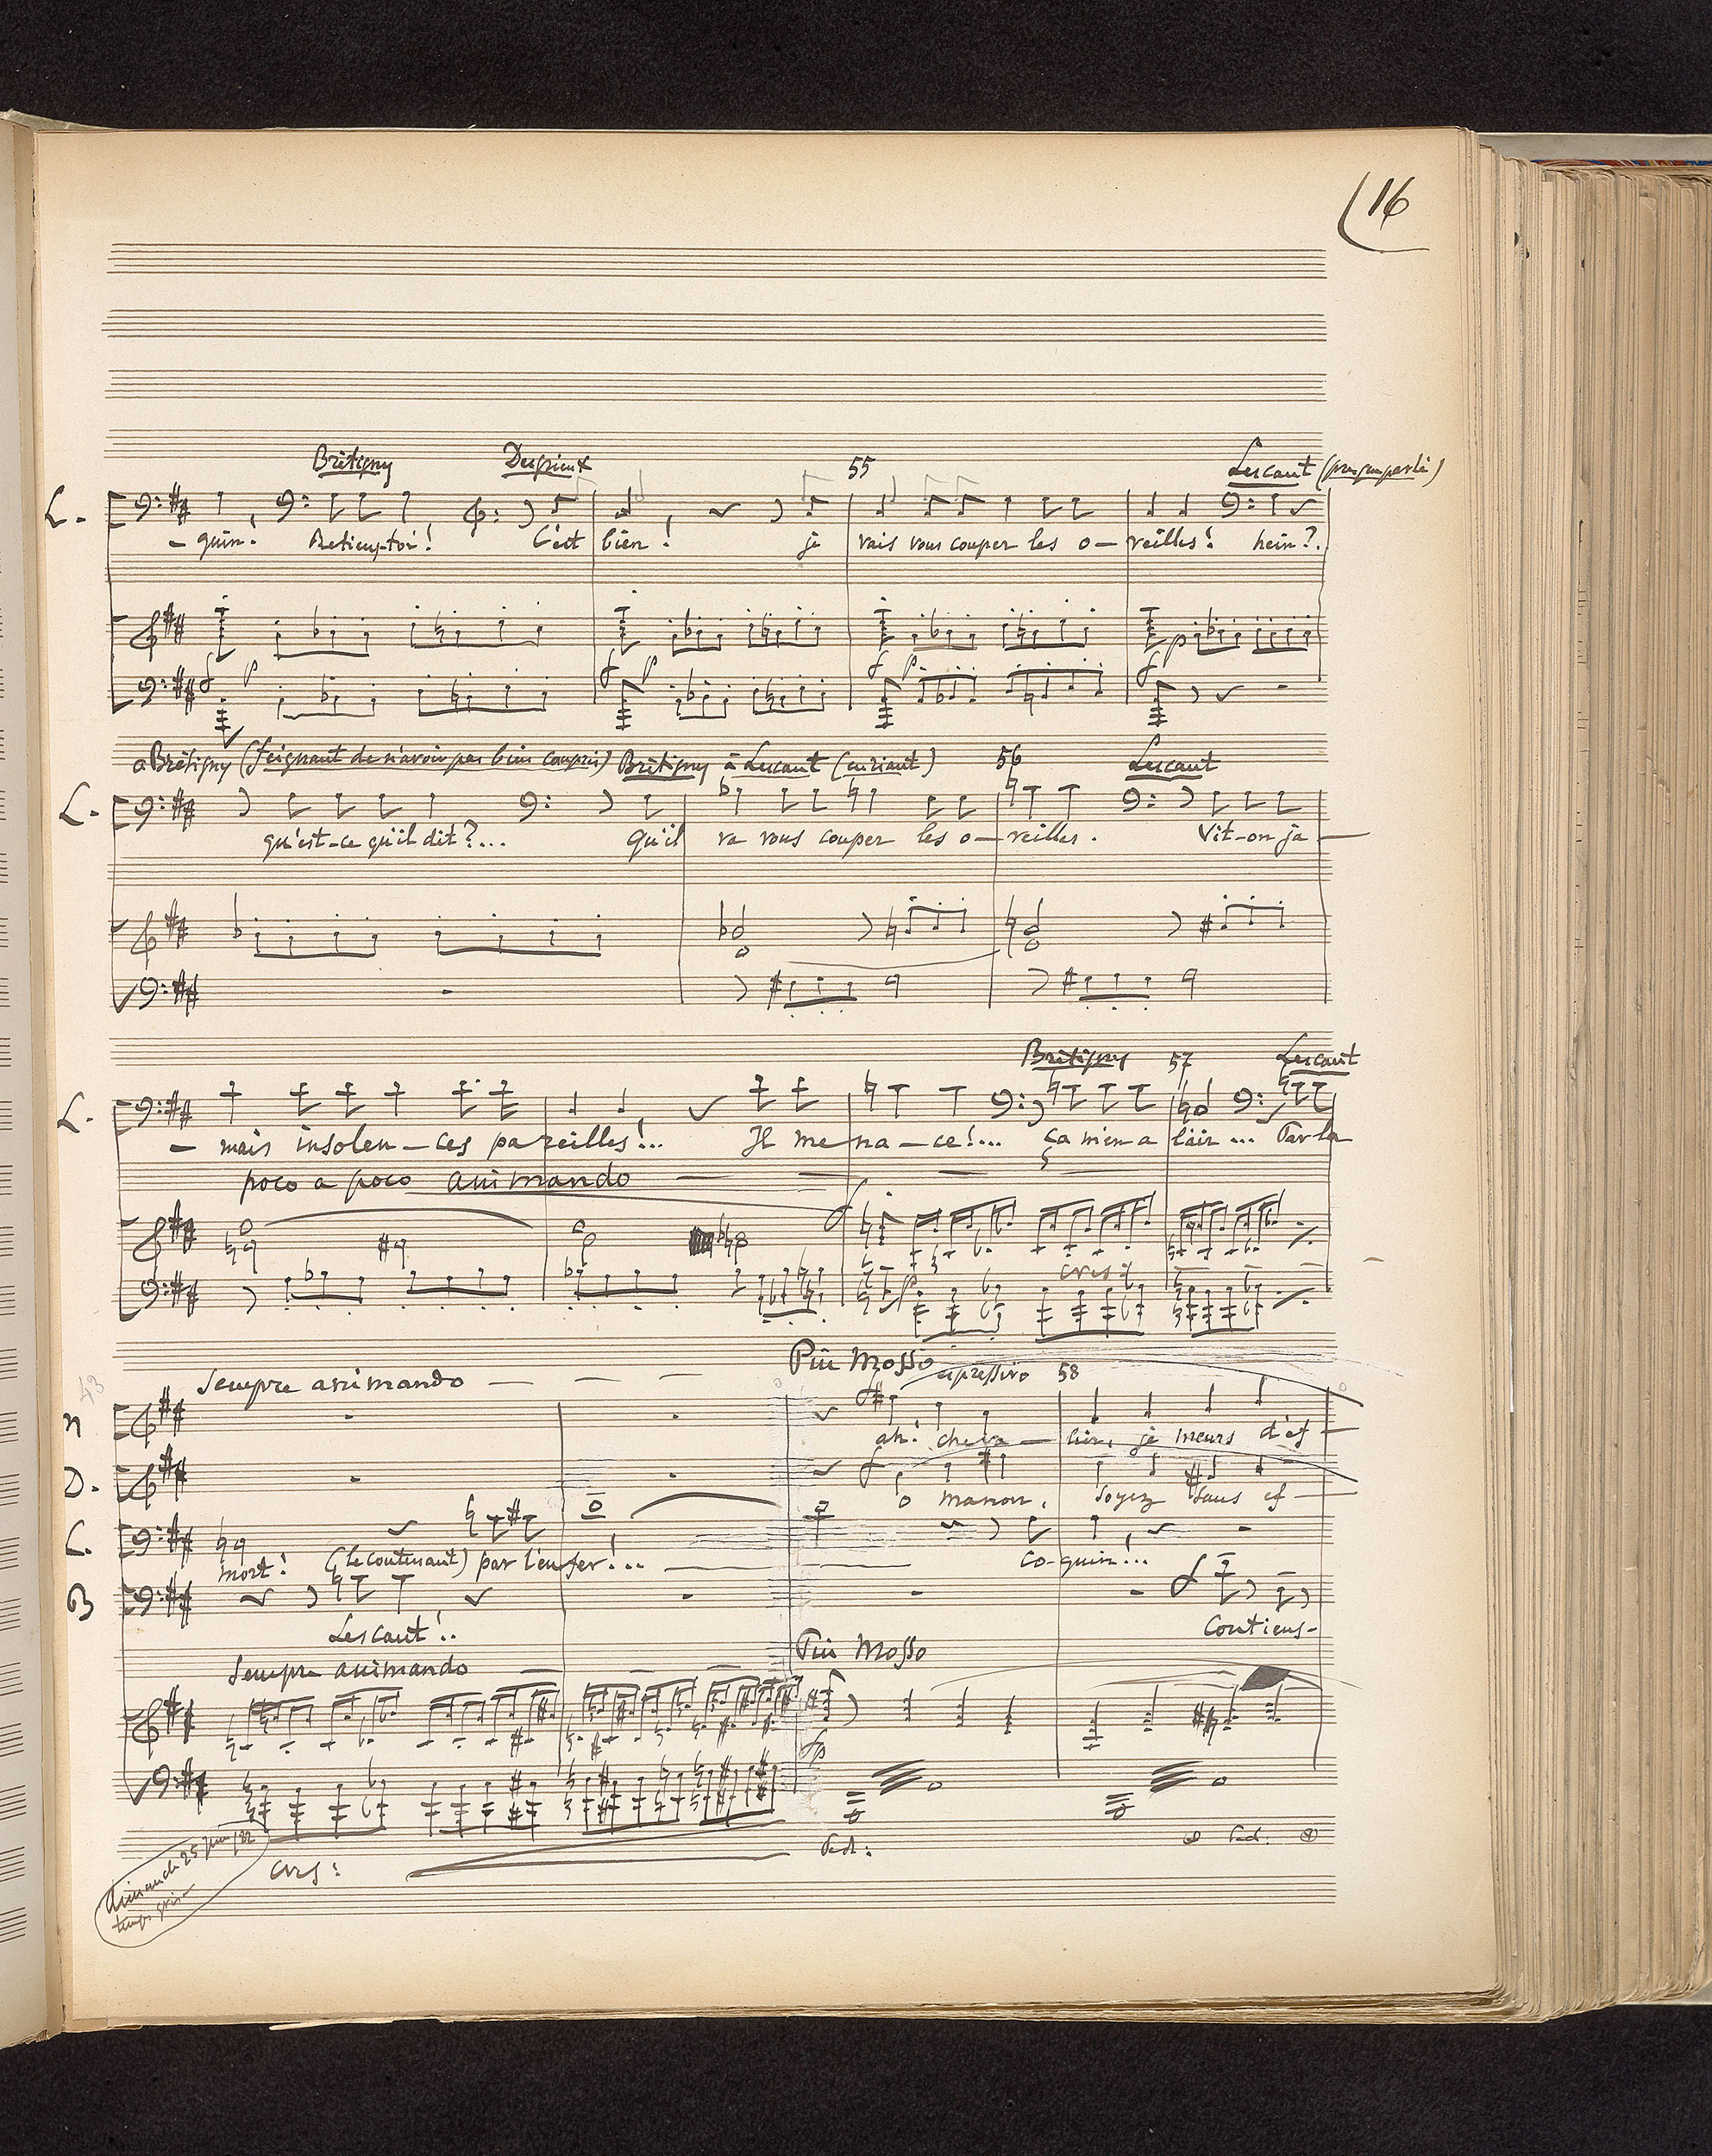 16
Brétigny Desgrieux 55 Lescaut (presque parlé)
L.
- quin! Retiens-toi! C'est bien! je vais vous couper les o - reilles! hein?.
f p f p f p f p
a Brétigny (feignant de n'avoir pas bien compris) Brétigny à Lescaut (en riant) 56 Lescaut
L.
qu'est-ce qu'il dit?... Qu'il va vous couper les o - reilles. Vit-on ja -
Brétigny 57 Lescaut
L.
- mais insolen - ces pareilles!... Il me na - ce!... ça m'en a l'air... Par la
poco a poco animando
f
p cres:
Più Mosso
Sempre animando espressivo 58
43
n
ah! cheva - lier, je meurs d'ef -
D.
o manon, soyez sans ef -
L.
mort! (le contenant) par l'enfer!... co - quin!...
B
Lescaut!.. Contiens-
Sempre animando Più Mosso
fp
Ped: Ped.
cres:
Dimanche 25 juin/82
temps gris